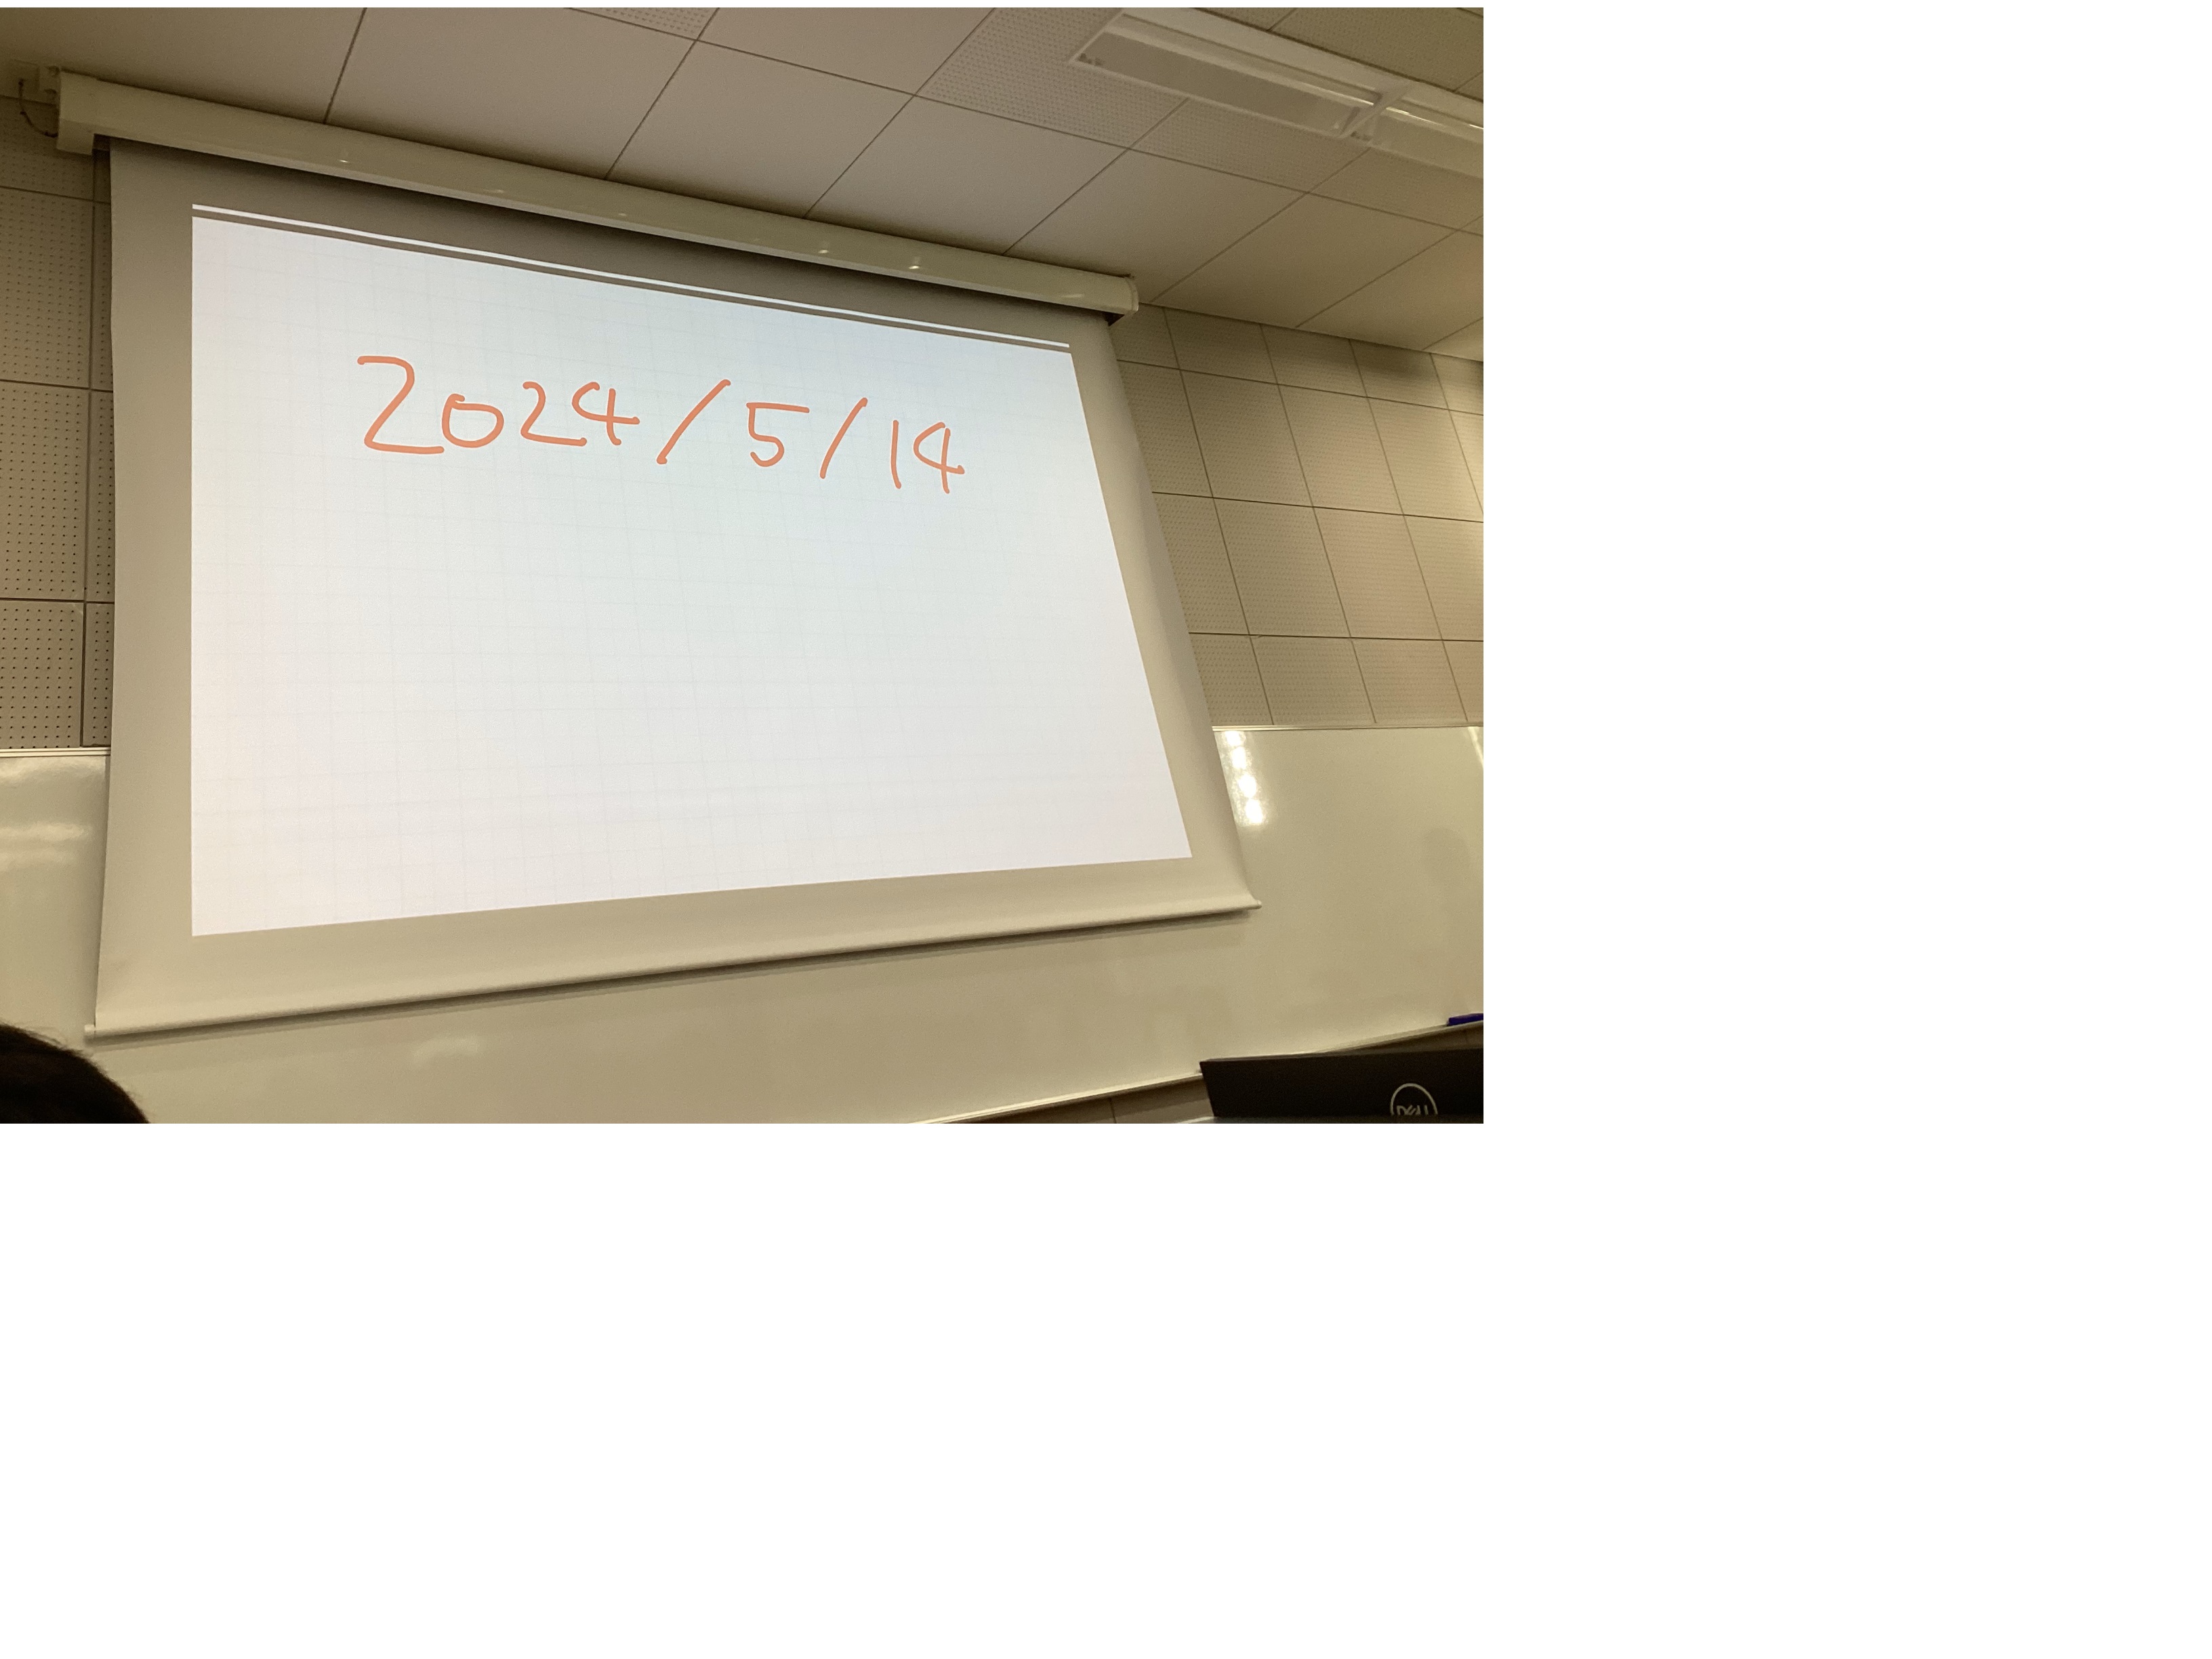 2024/5/14
DELL